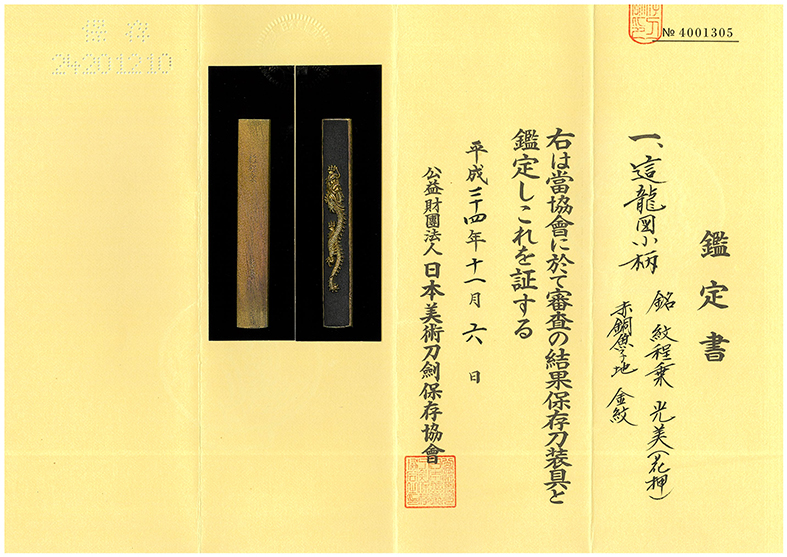 № 4001305
鑑定書
一、這龍図小柄
銘 紋程乗 光美(花押)
赤銅魚子地 金紋
右は當協會に於て審査の結果保存刀装具と
鑑定しこれを証する
平成二十四年十一月六日
公益財團法人 日本美術刀劍保存協會
保存
24201210